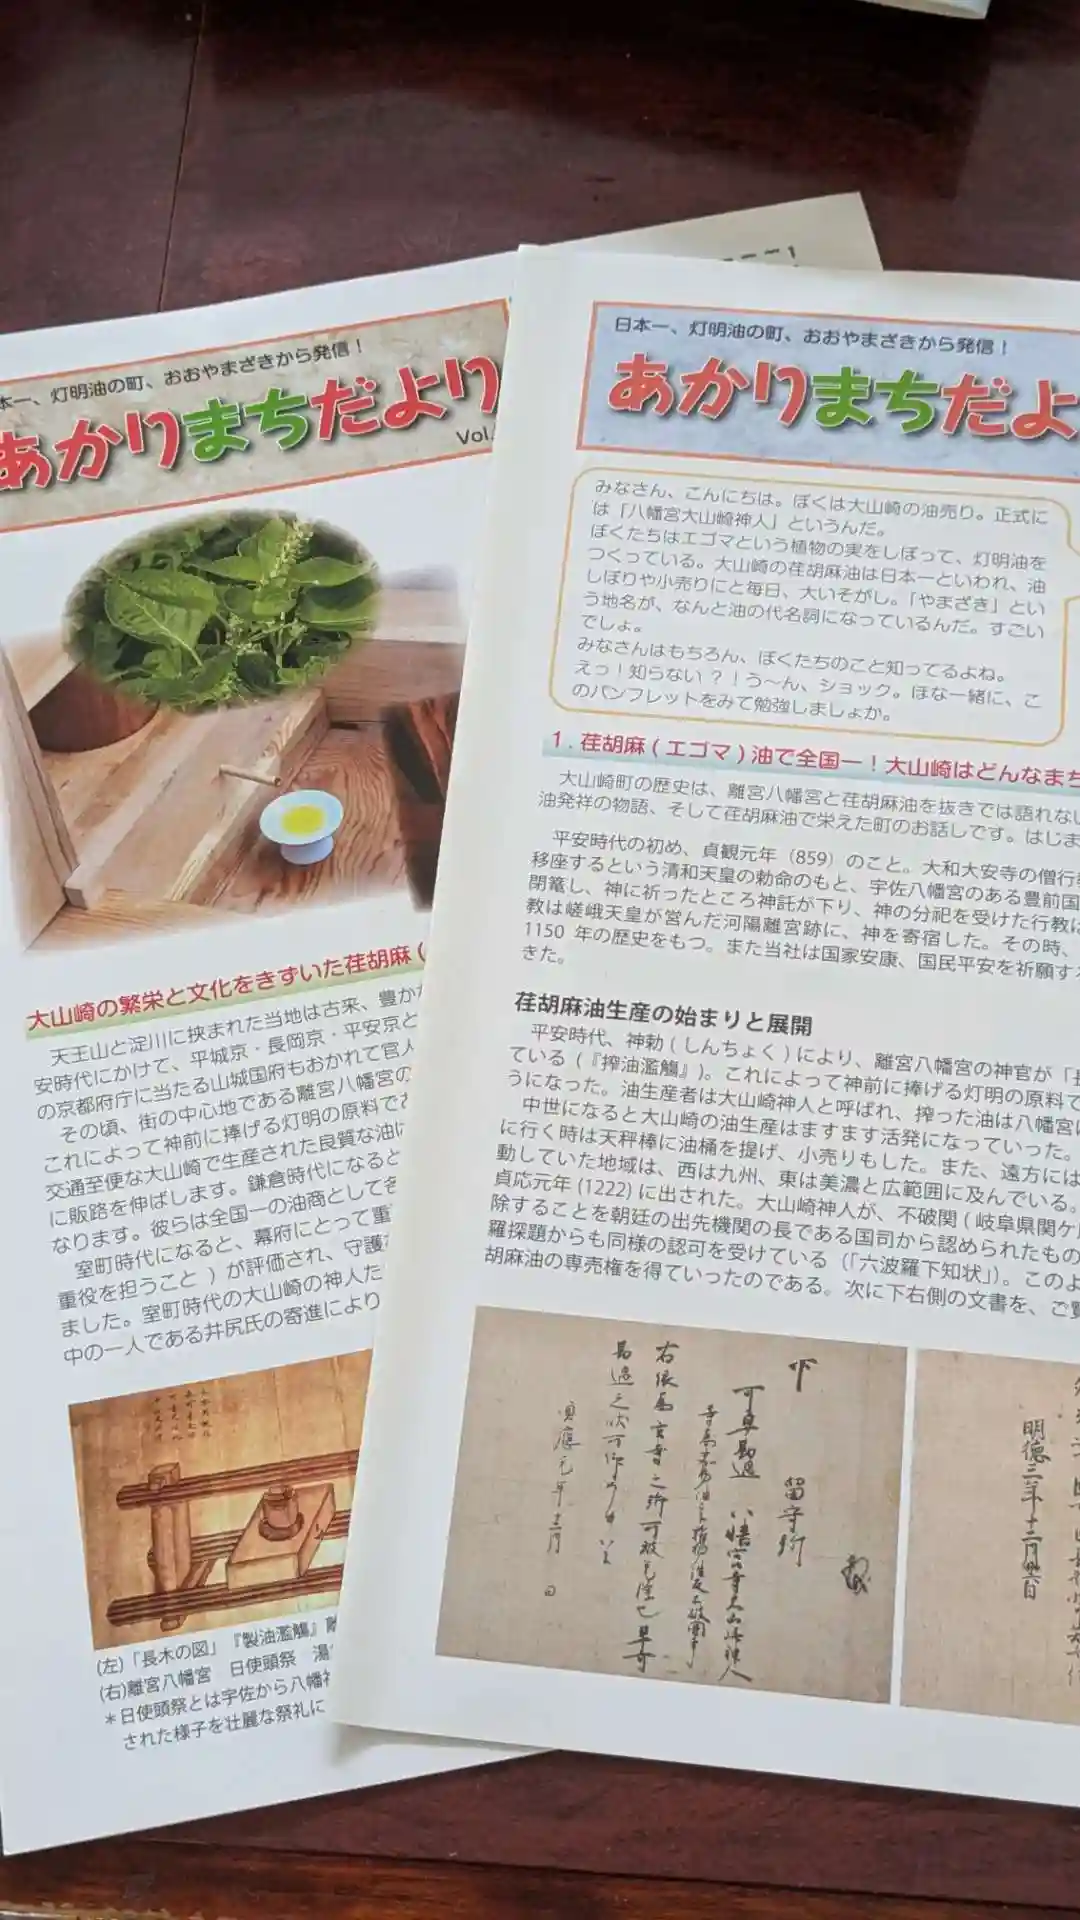 本一、灯明油の町、おおやまざきから発信！
あかりまちだより
Vol.
大山崎の繁栄と文化をきずいた荏胡麻（
天王山と淀川に挟まれた当地は古来、豊か
安時代にかけて、平城京・長岡京・平安京と
の京都府庁に当たる山城国府もおかれて官人
その頃、街の中心地である離宮八幡宮の
これによって神前に捧げる灯明の原料であ
交通至便な大山崎で生産された良質な油に
に販路を伸ばします。鎌倉時代になると
なります。彼らは全国一の油商として各
室町時代になると、幕府にとって重
重役を担うこと ）が評価され、守護
ました。室町時代の大山崎の神人た
中の一人である井尻氏の寄進により
(左)「長木の図」『製油濫觴』
(右)離宮八幡宮　日使頭祭　湯
＊日使頭祭とは宇佐から八幡
された様子を壮麗な祭礼に
日本一、灯明油の町、おおやまざきから発信！
あかりまちだよ
みなさん、こんにちは。ぼくは大山崎の油売り。正式に
は「八幡宮大山崎神人」というんだ。
ぼくたちはエゴマという植物の実をしぼって、灯明油を
つくっている。大山崎の荏胡麻油は日本一といわれ、油
しぼりや小売りにと毎日、大いそがし。「やまざき」とい
う地名が、なんと油の代名詞になっているんだ。すごい
でしょ。
みなさんはもちろん、ぼくたちのこと知ってるよね。
えっ！知らない？！う～ん、ショック。ほな一緒に、こ
のパンフレットをみて勉強しましょか。
1．荏胡麻（エゴマ）油で全国一！大山崎はどんなまち
大山崎町の歴史は、離宮八幡宮と荏胡麻油を抜きでは語れない
油発祥の物語、そして荏胡麻油で栄えた町のお話しです。はじま
平安時代の初め、貞観元年（859）のこと。大和大安寺の僧行
移座するという清和天皇の勅命のもと、宇佐八幡宮のある豊前国
閉篭し、神に祈ったところ神託が下り、神の分祀を受けた行教は
教は嵯峨天皇が営んだ河陽離宮跡に、神を寄宿した。その時、
1150 年の歴史をもつ。また当社は国家安康、国民平安を祈願する
きた。
荏胡麻油生産の始まりと展開
平安時代、神勅（しんちょく）により、離宮八幡宮の神官が「長
ている（『搾油濫觴』）。これによって神前に捧げる灯明の原料で
うになった。油生産者は大山崎神人と呼ばれ、搾った油は八幡宮
中世になると大山崎の油生産はますます活発になっていった。
に行く時は天秤棒に油桶を提げ、小売りもした。また、遠方には
動していた地域は、西は九州、東は美濃と広範囲に及んでいる。
貞応元年(1222)に出された。大山崎神人が、不破関（岐阜県関ケ
除することを朝廷の出先機関の長である国司から認められたもの
羅探題からも同様の認可を受けている（「六波羅下知状」）。このよ
胡麻油の専売権を得ていったのである。次に下右側の文書を、ご覧
下
留守所
明徳三年十二月廿六日